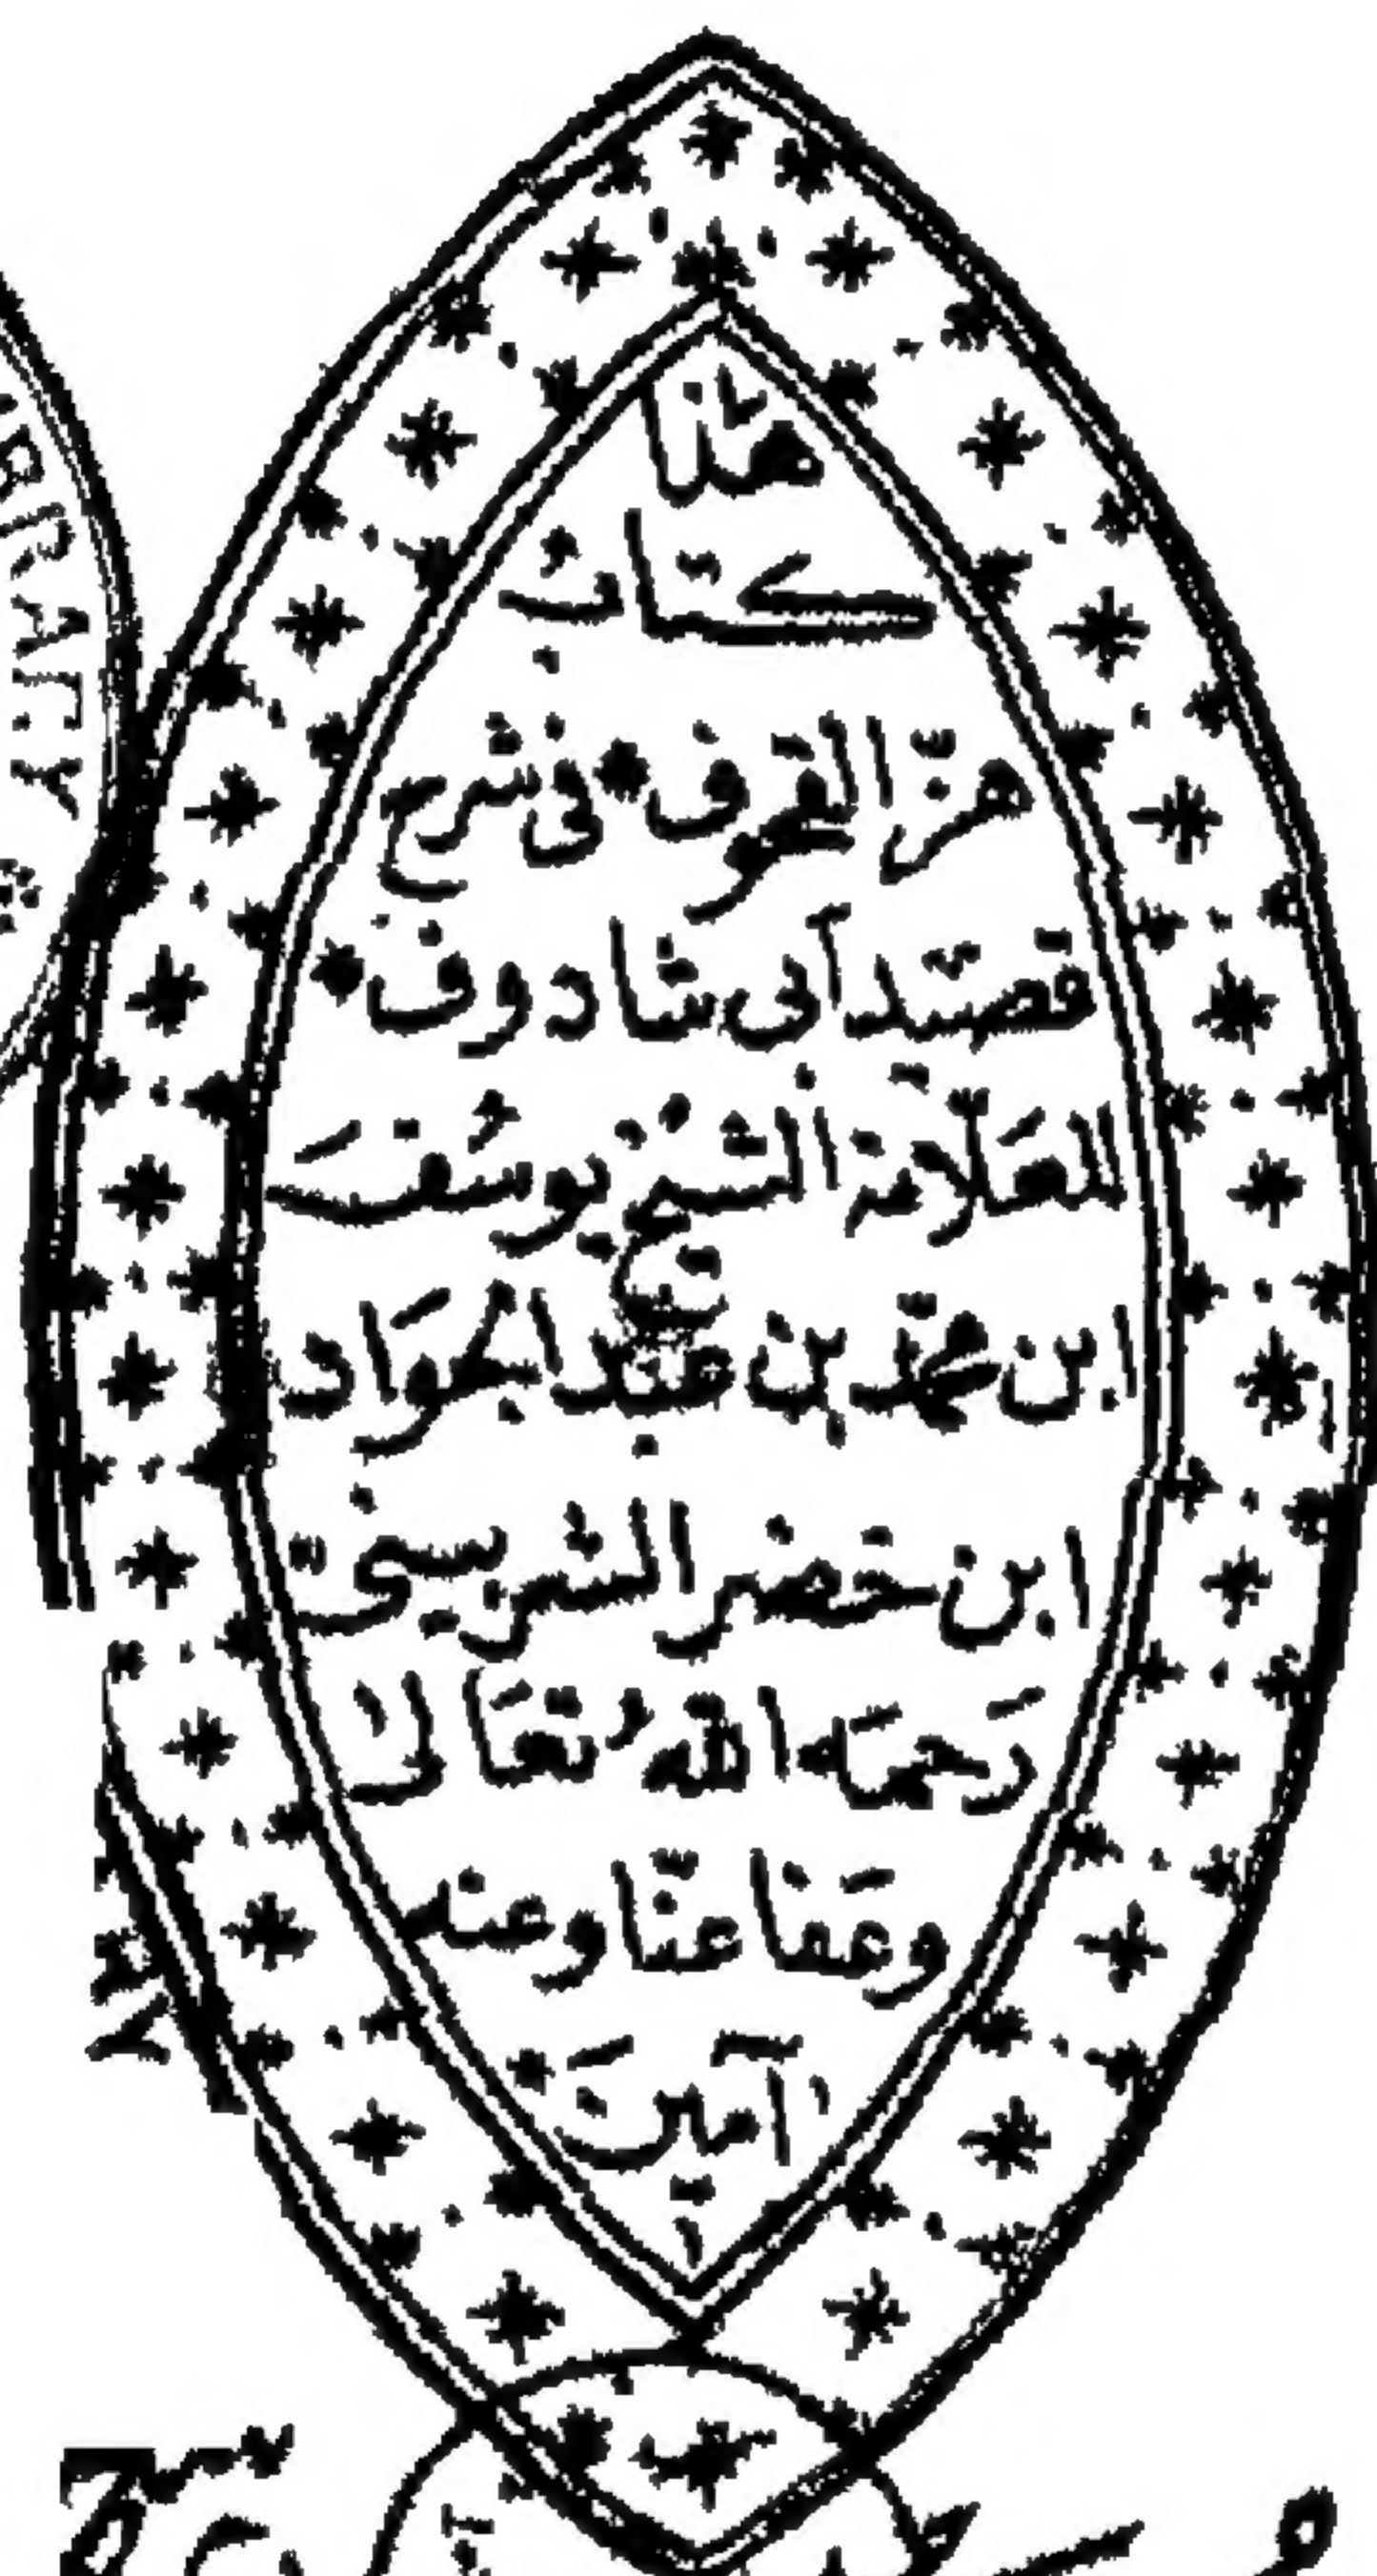 هذا
كتابُ
هزّ القحوف * في شرح
قصيد أبي شادوف *
للعَلّامة الشيخ يوسُفَ
ابن محمّد بن عبد الجوَاد
ابن خضر الشربيني
رَحمَه اللهُ تعَالى
وعَفا عنّا وعنه
آمينَ *
LIBRARY